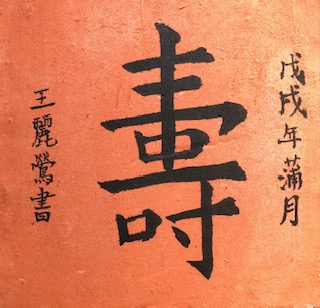 戊戌年蒲月
壽
王麗鶯書